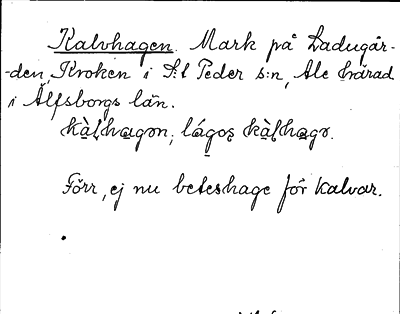 Kalvhagen. Mark på Ladugår-
-den, Kroken i S:t Peder s:n, Ale härad
i Älfsborgs län.
Förr, ej nu beteshage för kalvar.